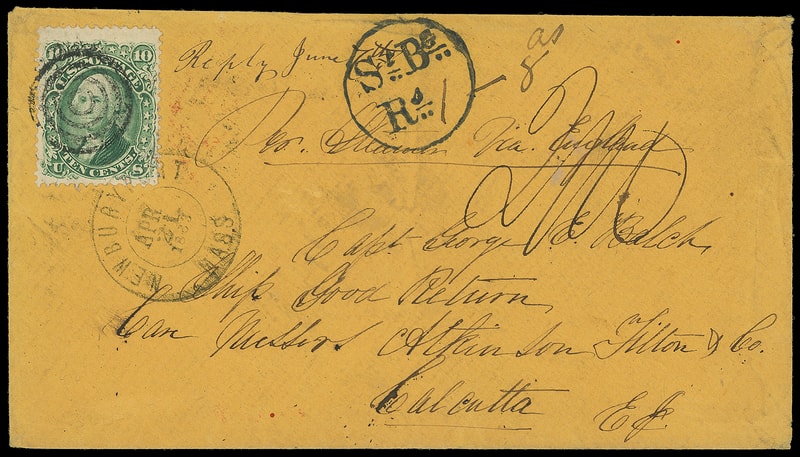 10 10
U.S. POSTAGE
TEN CENTS
U S
Reply June 7th
St Bg
Rd
1
as
8
Per Steamer Via. England
NEWBURYPORT MASS
APR
Capt. George E. Balch,
Ship Good Return,
Care Messers Atkinson Tilton & Co.
Calcutta E.I.